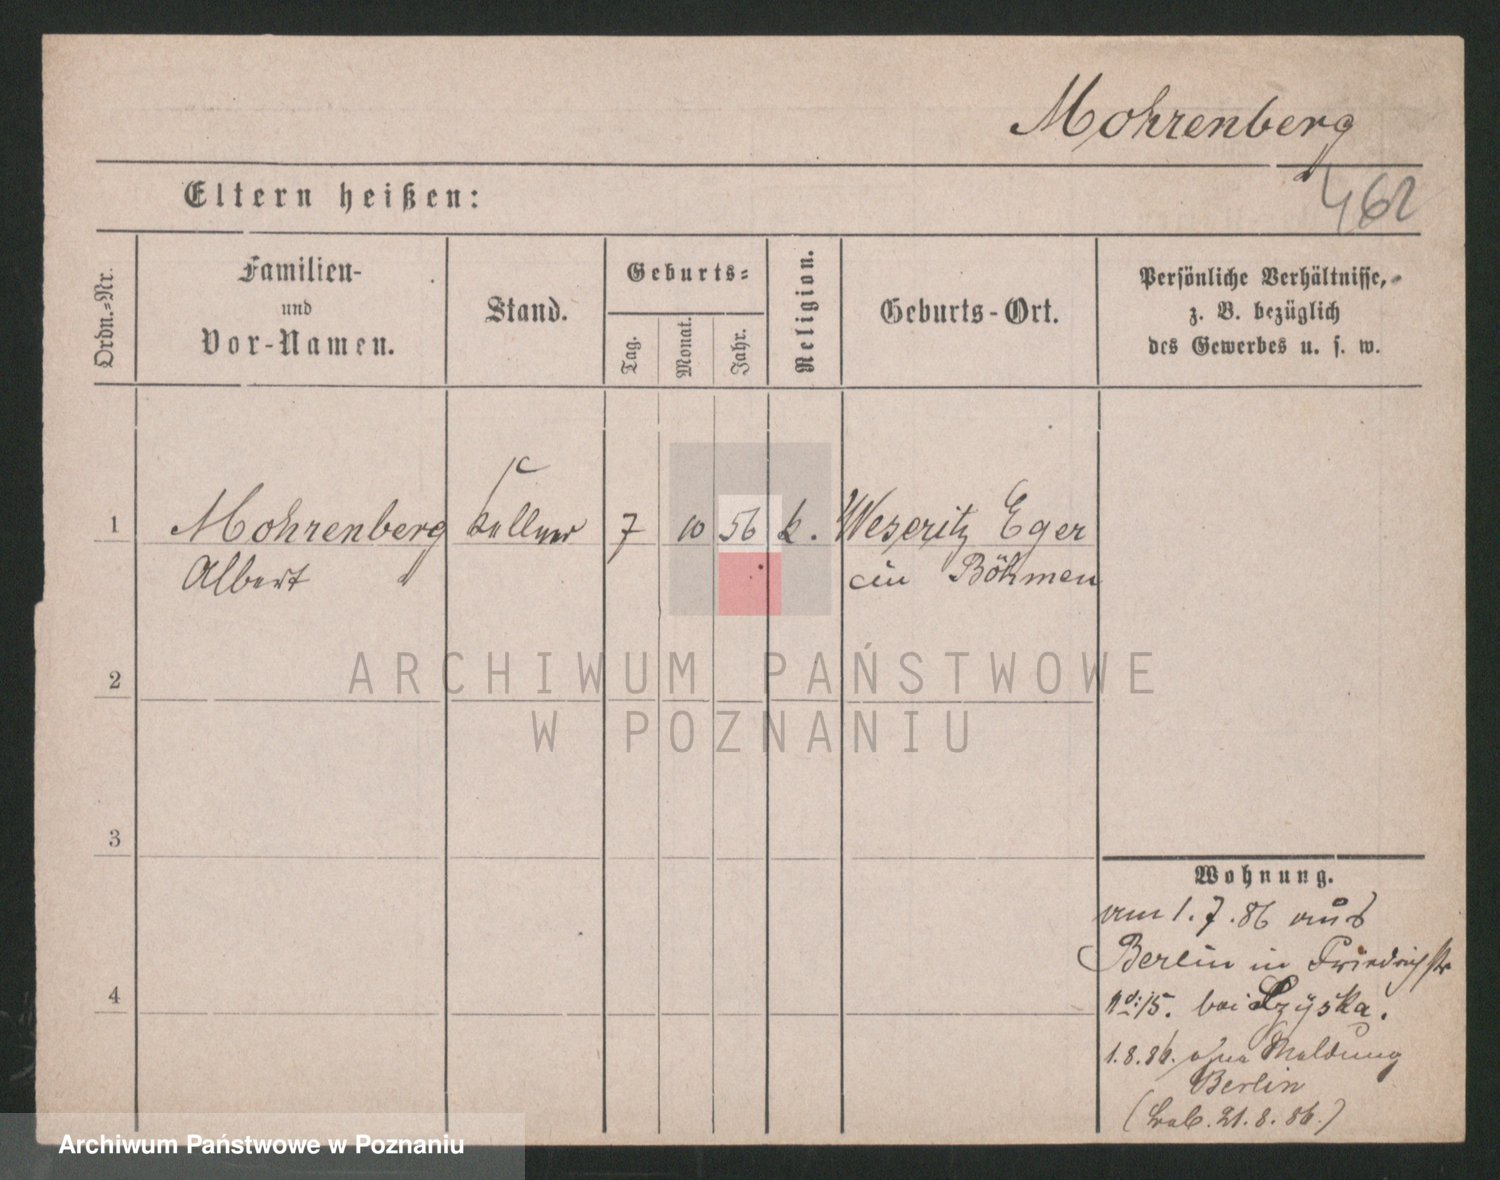 Mohrenberg
462
Eltern heißen:
Ordn.-Nr.
Familien-
und
Vor-Namen.
Stand.
Geburts-
Tag.
Monat.
Jahr.
Religion.
Geburts-Ort.
Persönliche Verhältnisse,
z. B. bezüglich
des Gewerbes u. s. w.
1
Mohrenberg
Albert
Kellner
7
10
56
k.
Weseritz Eger
in Böhmen
2
3
4
ARCHIWUM PAŃSTWOWE
W POZNANIU
Wohnung.
am 1.7.86 aus
Berlin in Friedrichstr
No: 15. bei Szyska.
1.8.86. ohne Meldung
Berlin
21.8.86.)
Archiwum Państwowe w Poznaniu